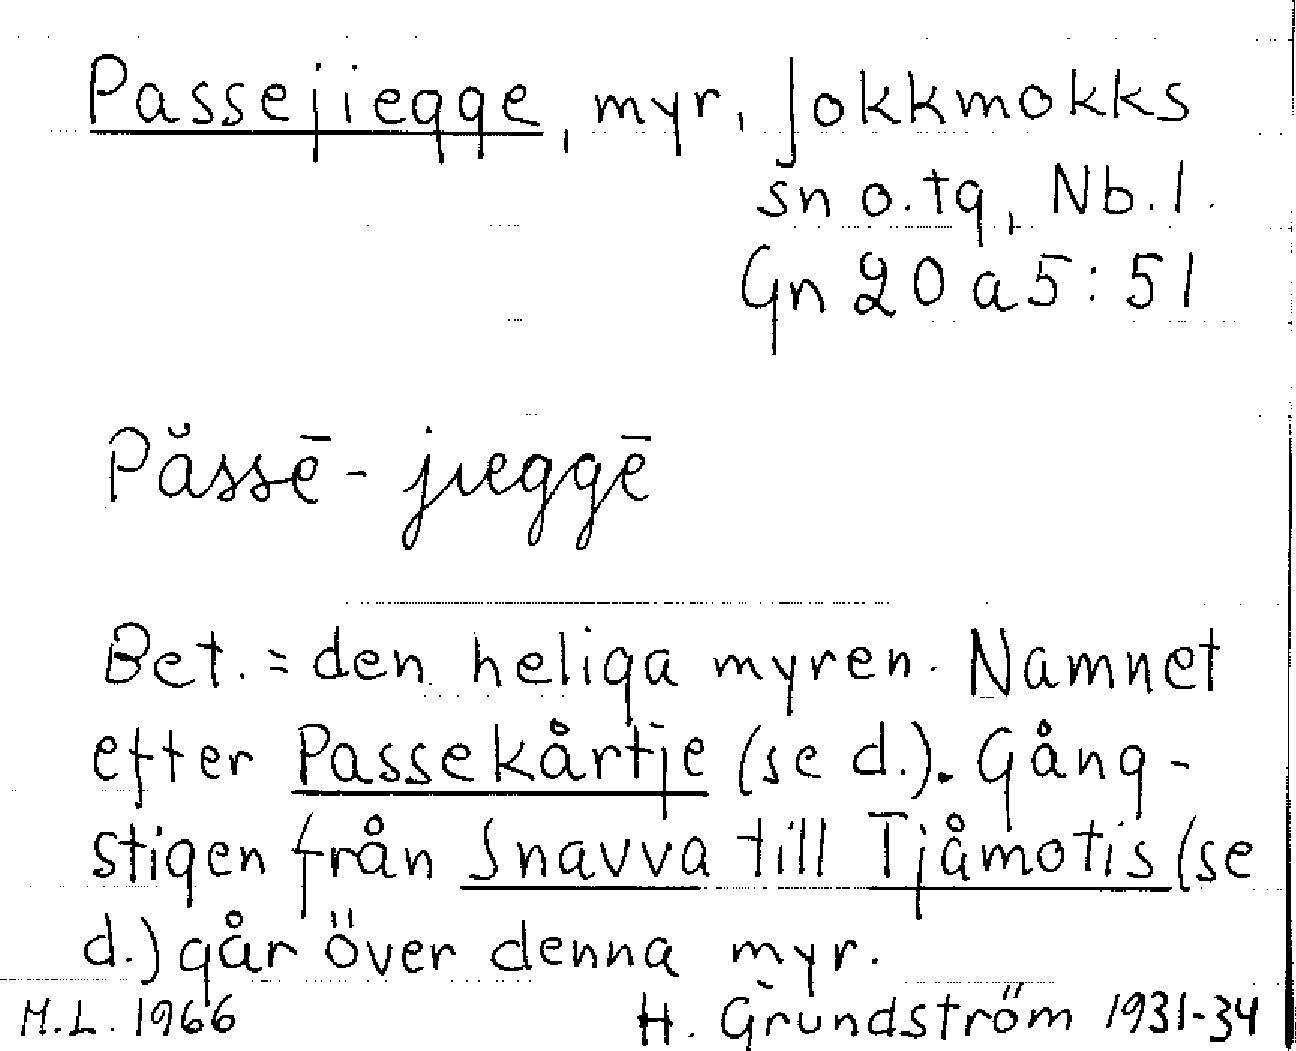 Passejiegge, myr, Jokkmokks
sn o. tg, Nb. l.
Gn 20 a 5:51
Påssē - jieggē
Bet. = den heliga myren. Namnet
efter Passekårtje (se d.). Gång-
stigen från Snavva till Tjåmotis (se
d.) går över denna myr.
M.L. 1966 H. Grundström 1931-34